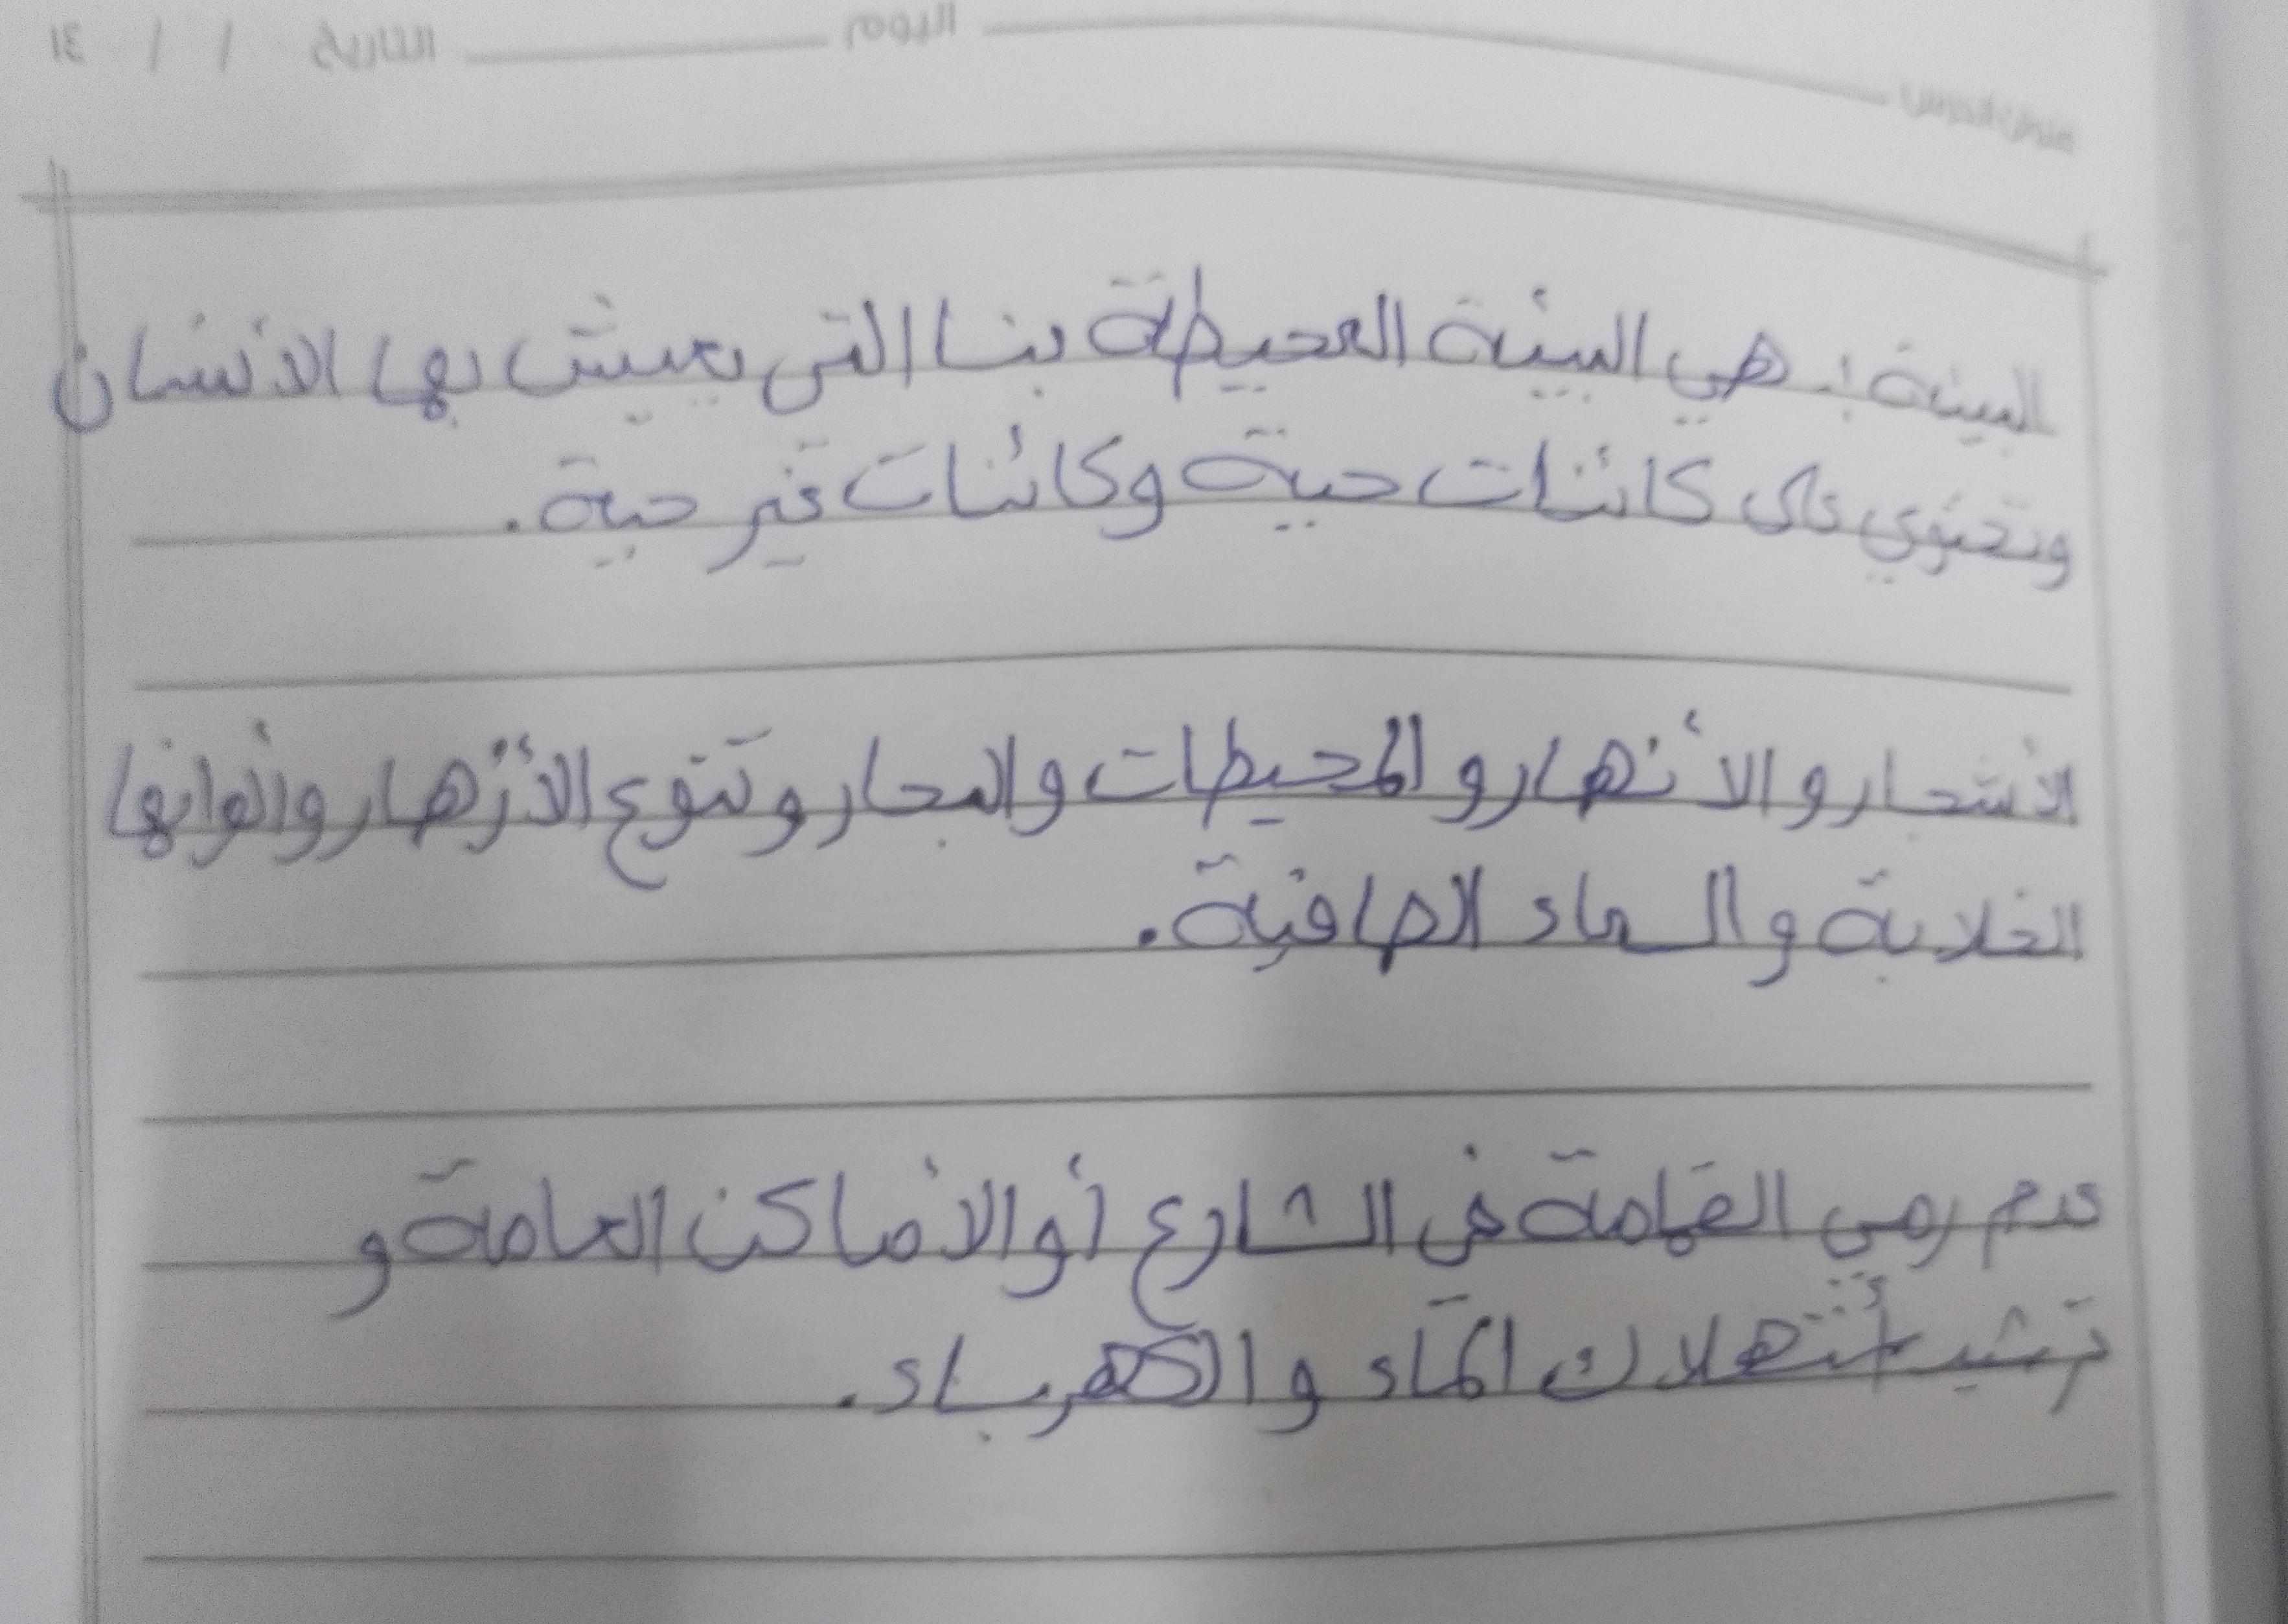 البيئة :- هي البيئة المحيطة بنا التى يعيش بها الأنسان
وتحتوي على كائنات حية وكائنات غير حية.
الأشجار و الأنهار و المحيطات والبحار و تنوع الأزهار وألوانها
الخلابة و السماء الصافية.
عدم رمى القمامة فى الشارع أو الأماكن العامة و
ترشيد أستهلاك الماء و الكهرباء.